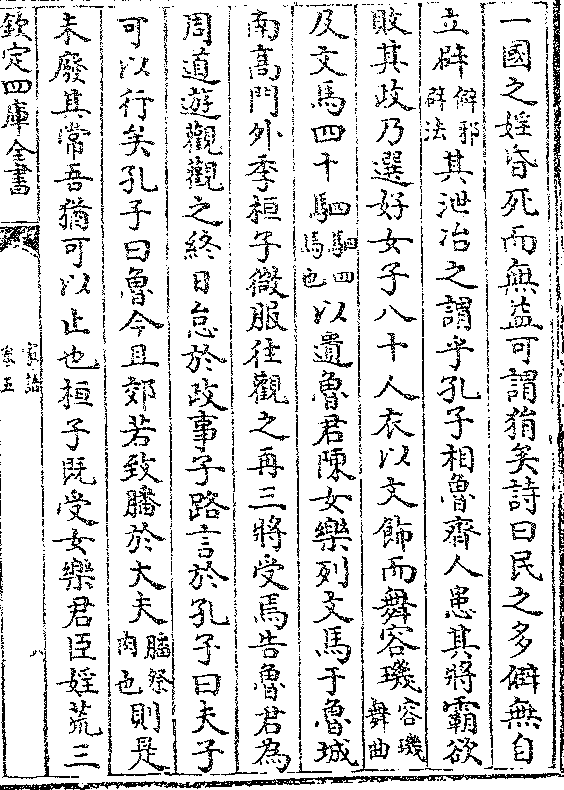 一國之婬昬死而無益可謂狷矣詩曰民之多僻無自
立辟僻邪辟法其泄冶之謂乎孔子相魯齊人患其將霸欲
敗其政乃選好女子八十人衣以文飾而舞容璣容璣舞曲
及文馬四十駟駟四馬也以遺魯君陳女樂列文馬于魯城
南髙門外季桓子微服徃觀之再三將受焉告魯君為
周道遊觀觀之終日怠於政事子路言於孔子曰夫子
可以行矣孔子曰魯今且郊若致膰於大夫膰祭肉也則是
未廢其常吾猶可以止也桓子既受女樂君臣婬荒三
欽定四庫全書
家語
卷五
八